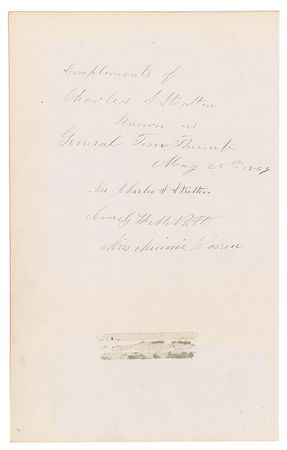 Compliments of
Charles S Stratton
Known as
General Tom Thumb
May 25th
Mrs Charles S Stratton
Com. G W M Nutt
Miss Minnie Warren